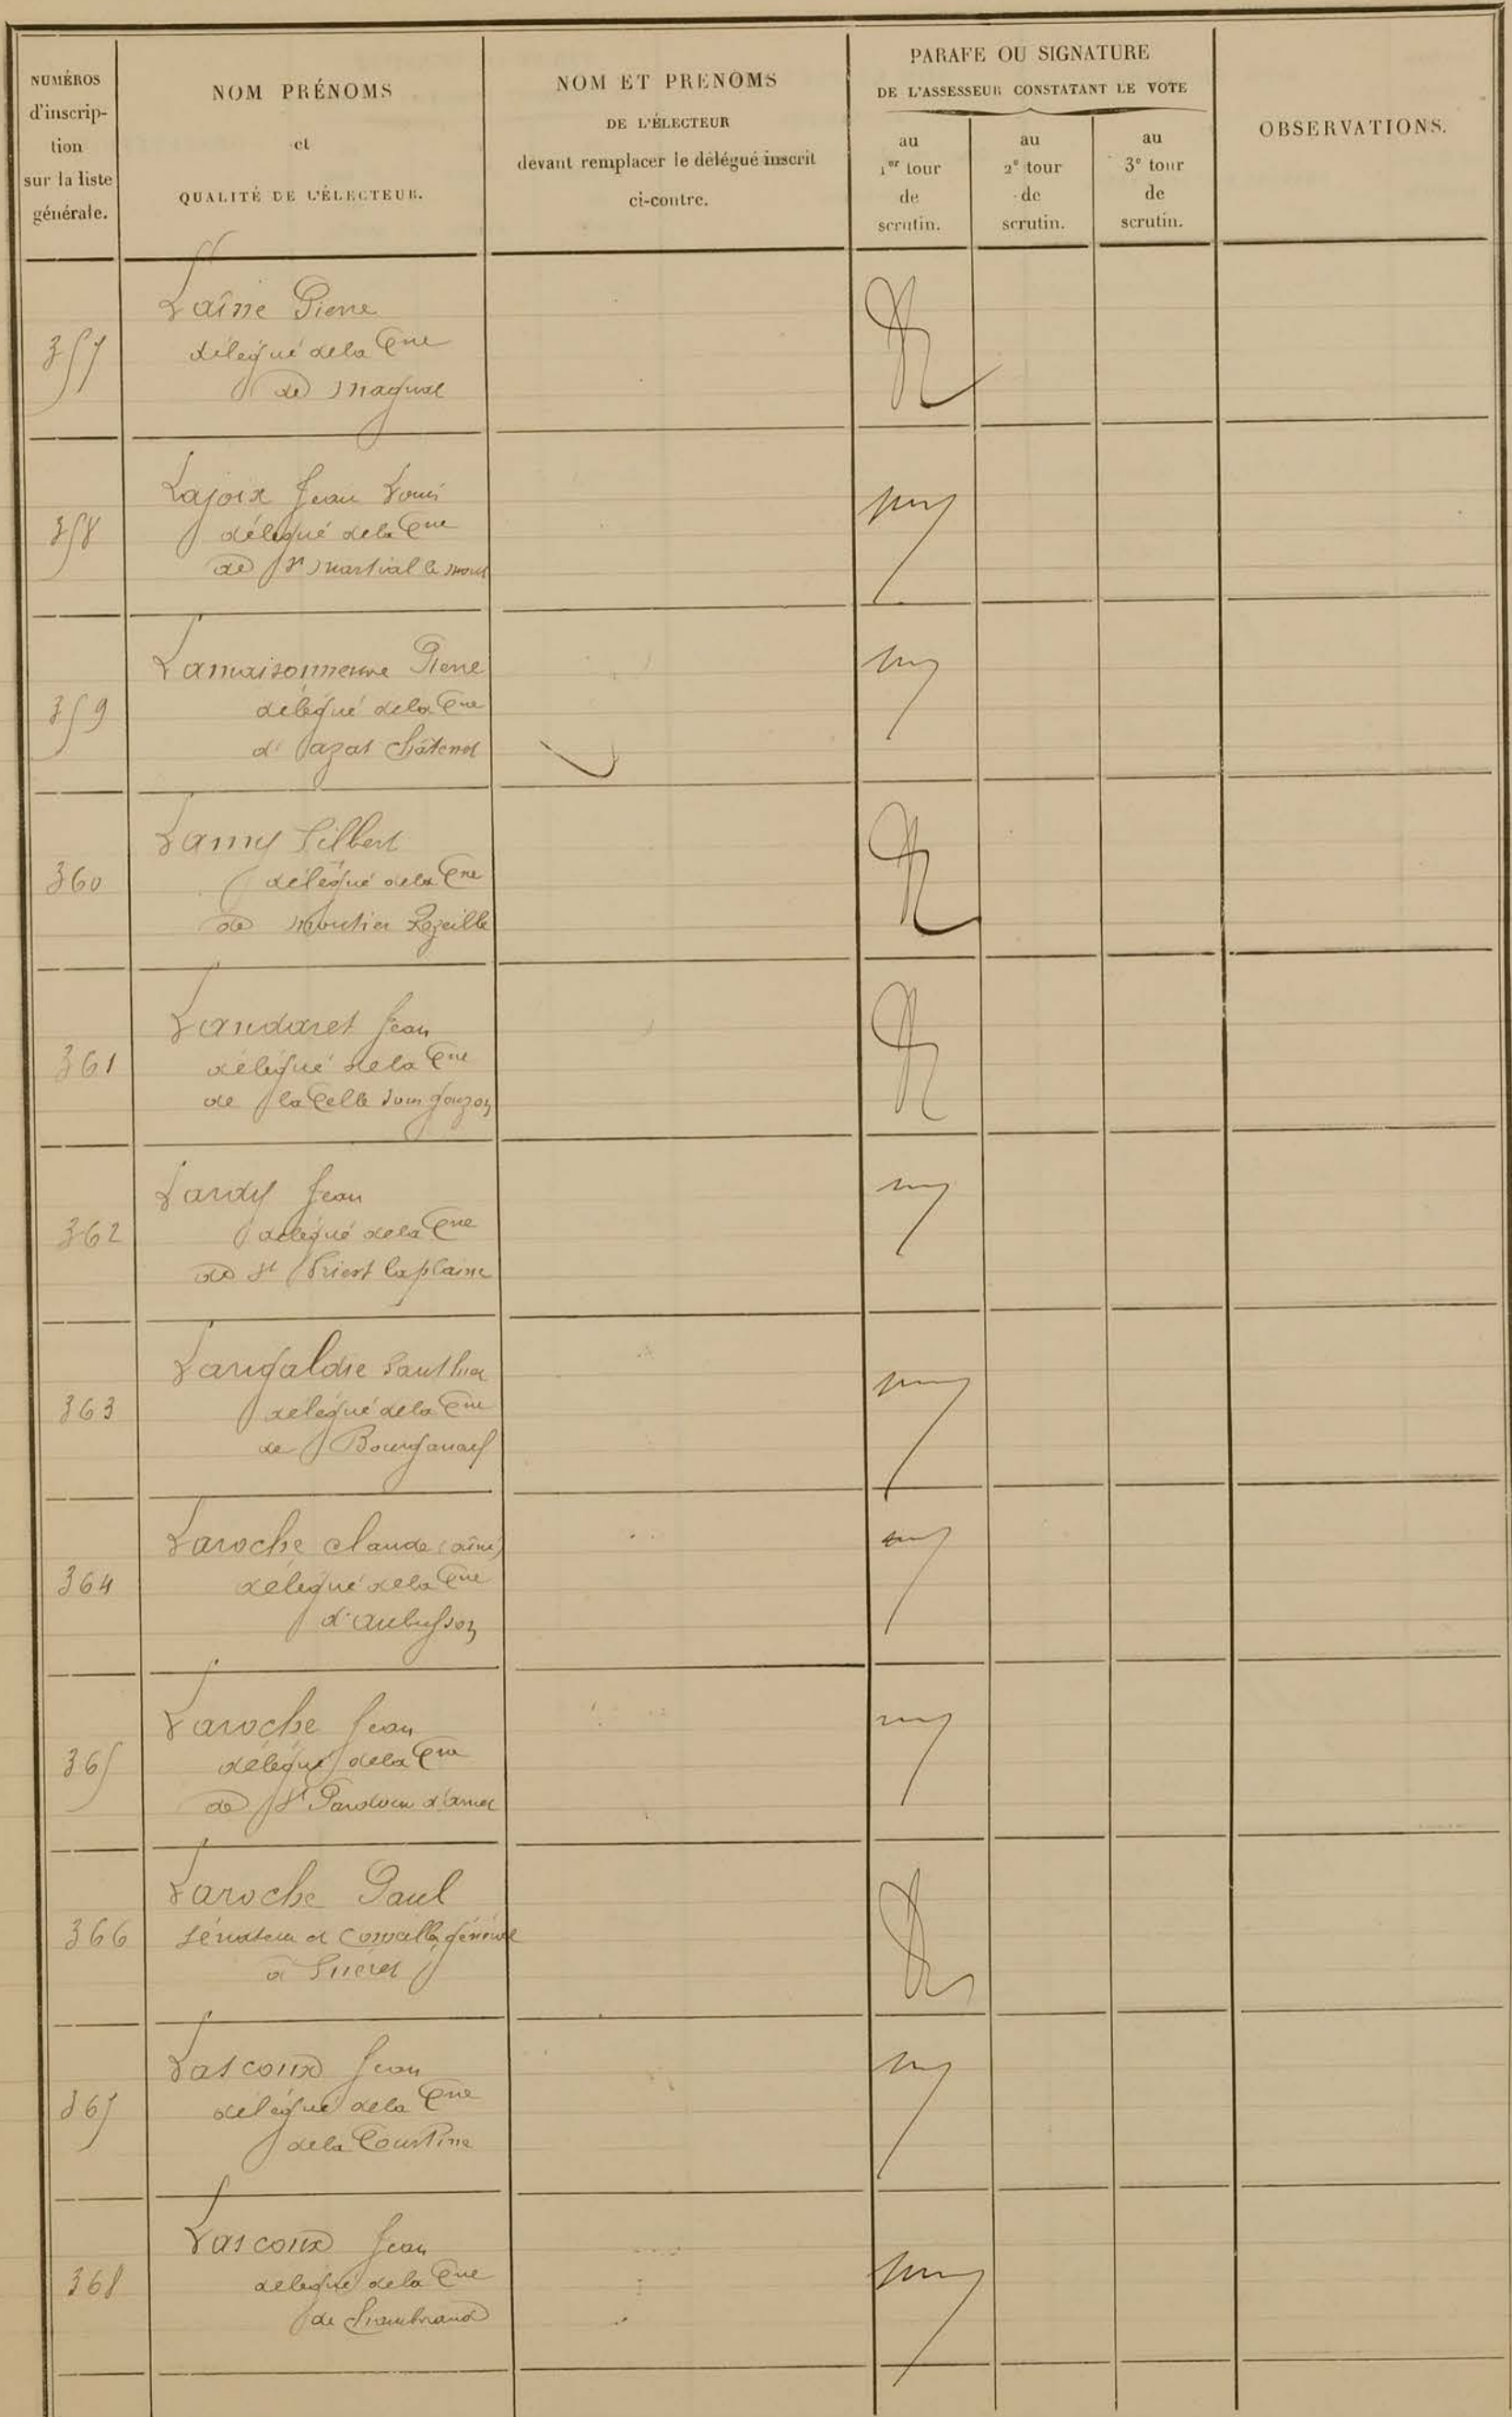 NUMÉROS
d'inscrip-
tion
sur la liste
générale.
NOM PRÉNOMS
et
QUALITÉ DE L'ÉLECTEUR.
NOM ET PRENOMS
DE L'ÉLECTEUR
devant remplacer le délégué inscrit
ci-contre.
PARAFE OU SIGNATURE
DE L'ASSESSEUR CONSTATANT LE VOTE
au
1er tour
de
scrutin.
au
2e tour
de
scrutin.
au
3e tour
de
scrutin.
OBSERVATIONS.
357
Laîné Pierre
délégué de la Cne
de Magnat
358
Lajoix Jean Louis
délégué de la Cne
de St Martial le Mont
359
Lamaisonneuve Pierre
délégué de la Cne
d'azat Châtenet
360
Lamy Silbert
délégué de la Cne
de Moutier Rozeille
361
Landaret Jean
délégué de la Cne
de la Celle sous Gouzon
362
Lardy Jean
délégué de la Cne
de St Priest la plaine
363
Larigaldie
délégué de la Cne
de Bourganeuf
364
Laroche Claude (aîné)
délégué de la Cne
d'aubusson
365
Laroche Jean
délégué de la Cne
de St Pardoux d'arnet
366
Laroche Paul
Sénateur et Conseiller général
à Guéret
367
Lascoux Jean
délégué de la Cne
de la Courtine
368
Lascoux Jean
délégué de la Cne
de